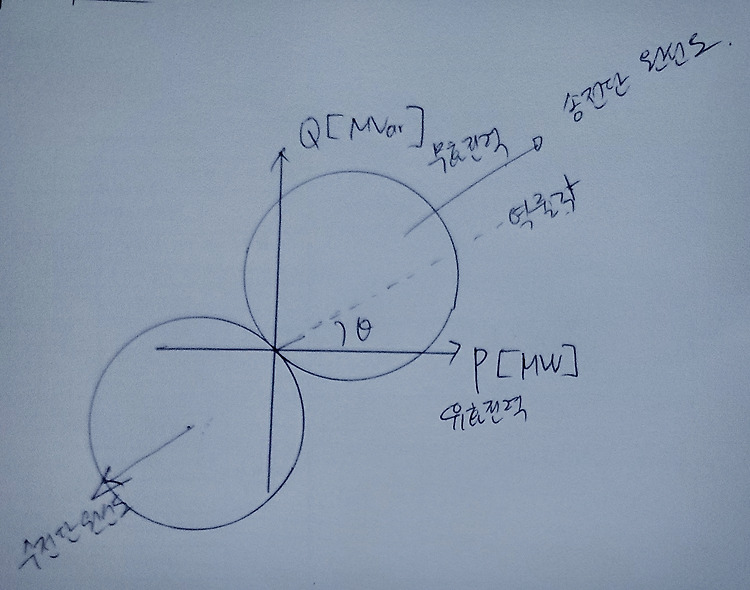 송전단 원선도.
Q[MVar]
무효전력
역률각
θ
P[MW]
유효전력
수전단 원선도